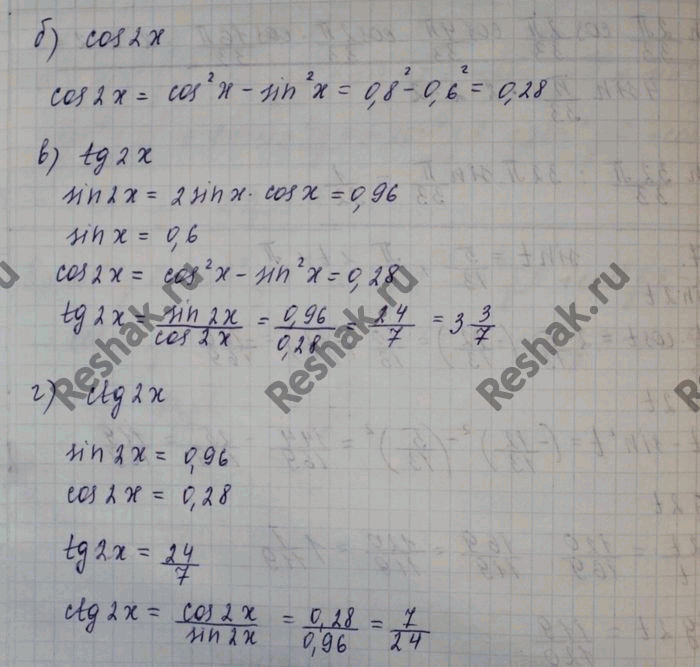 б) cos 2x
cos 2x = cos²x - sin²x = 0,8² - 0,6² = 0,28
в) tg 2x
sin 2x = 2 sin x · cos x = 0,96
sin x = 0,6
cos 2x = cos²x - sin²x = 0,28
tg 2x = sin 2x / cos 2x = 0,96 / 0,28 = 24/7 = 3 3/7
г) ctg 2x
sin 2x = 0,96
cos 2x = 0,28
tg 2x = 24/7
ctg 2x = cos 2x / sin 2x = 0,28 / 0,96 = 7/24
Reshak.ru
Reshak.ru
Reshak.ru